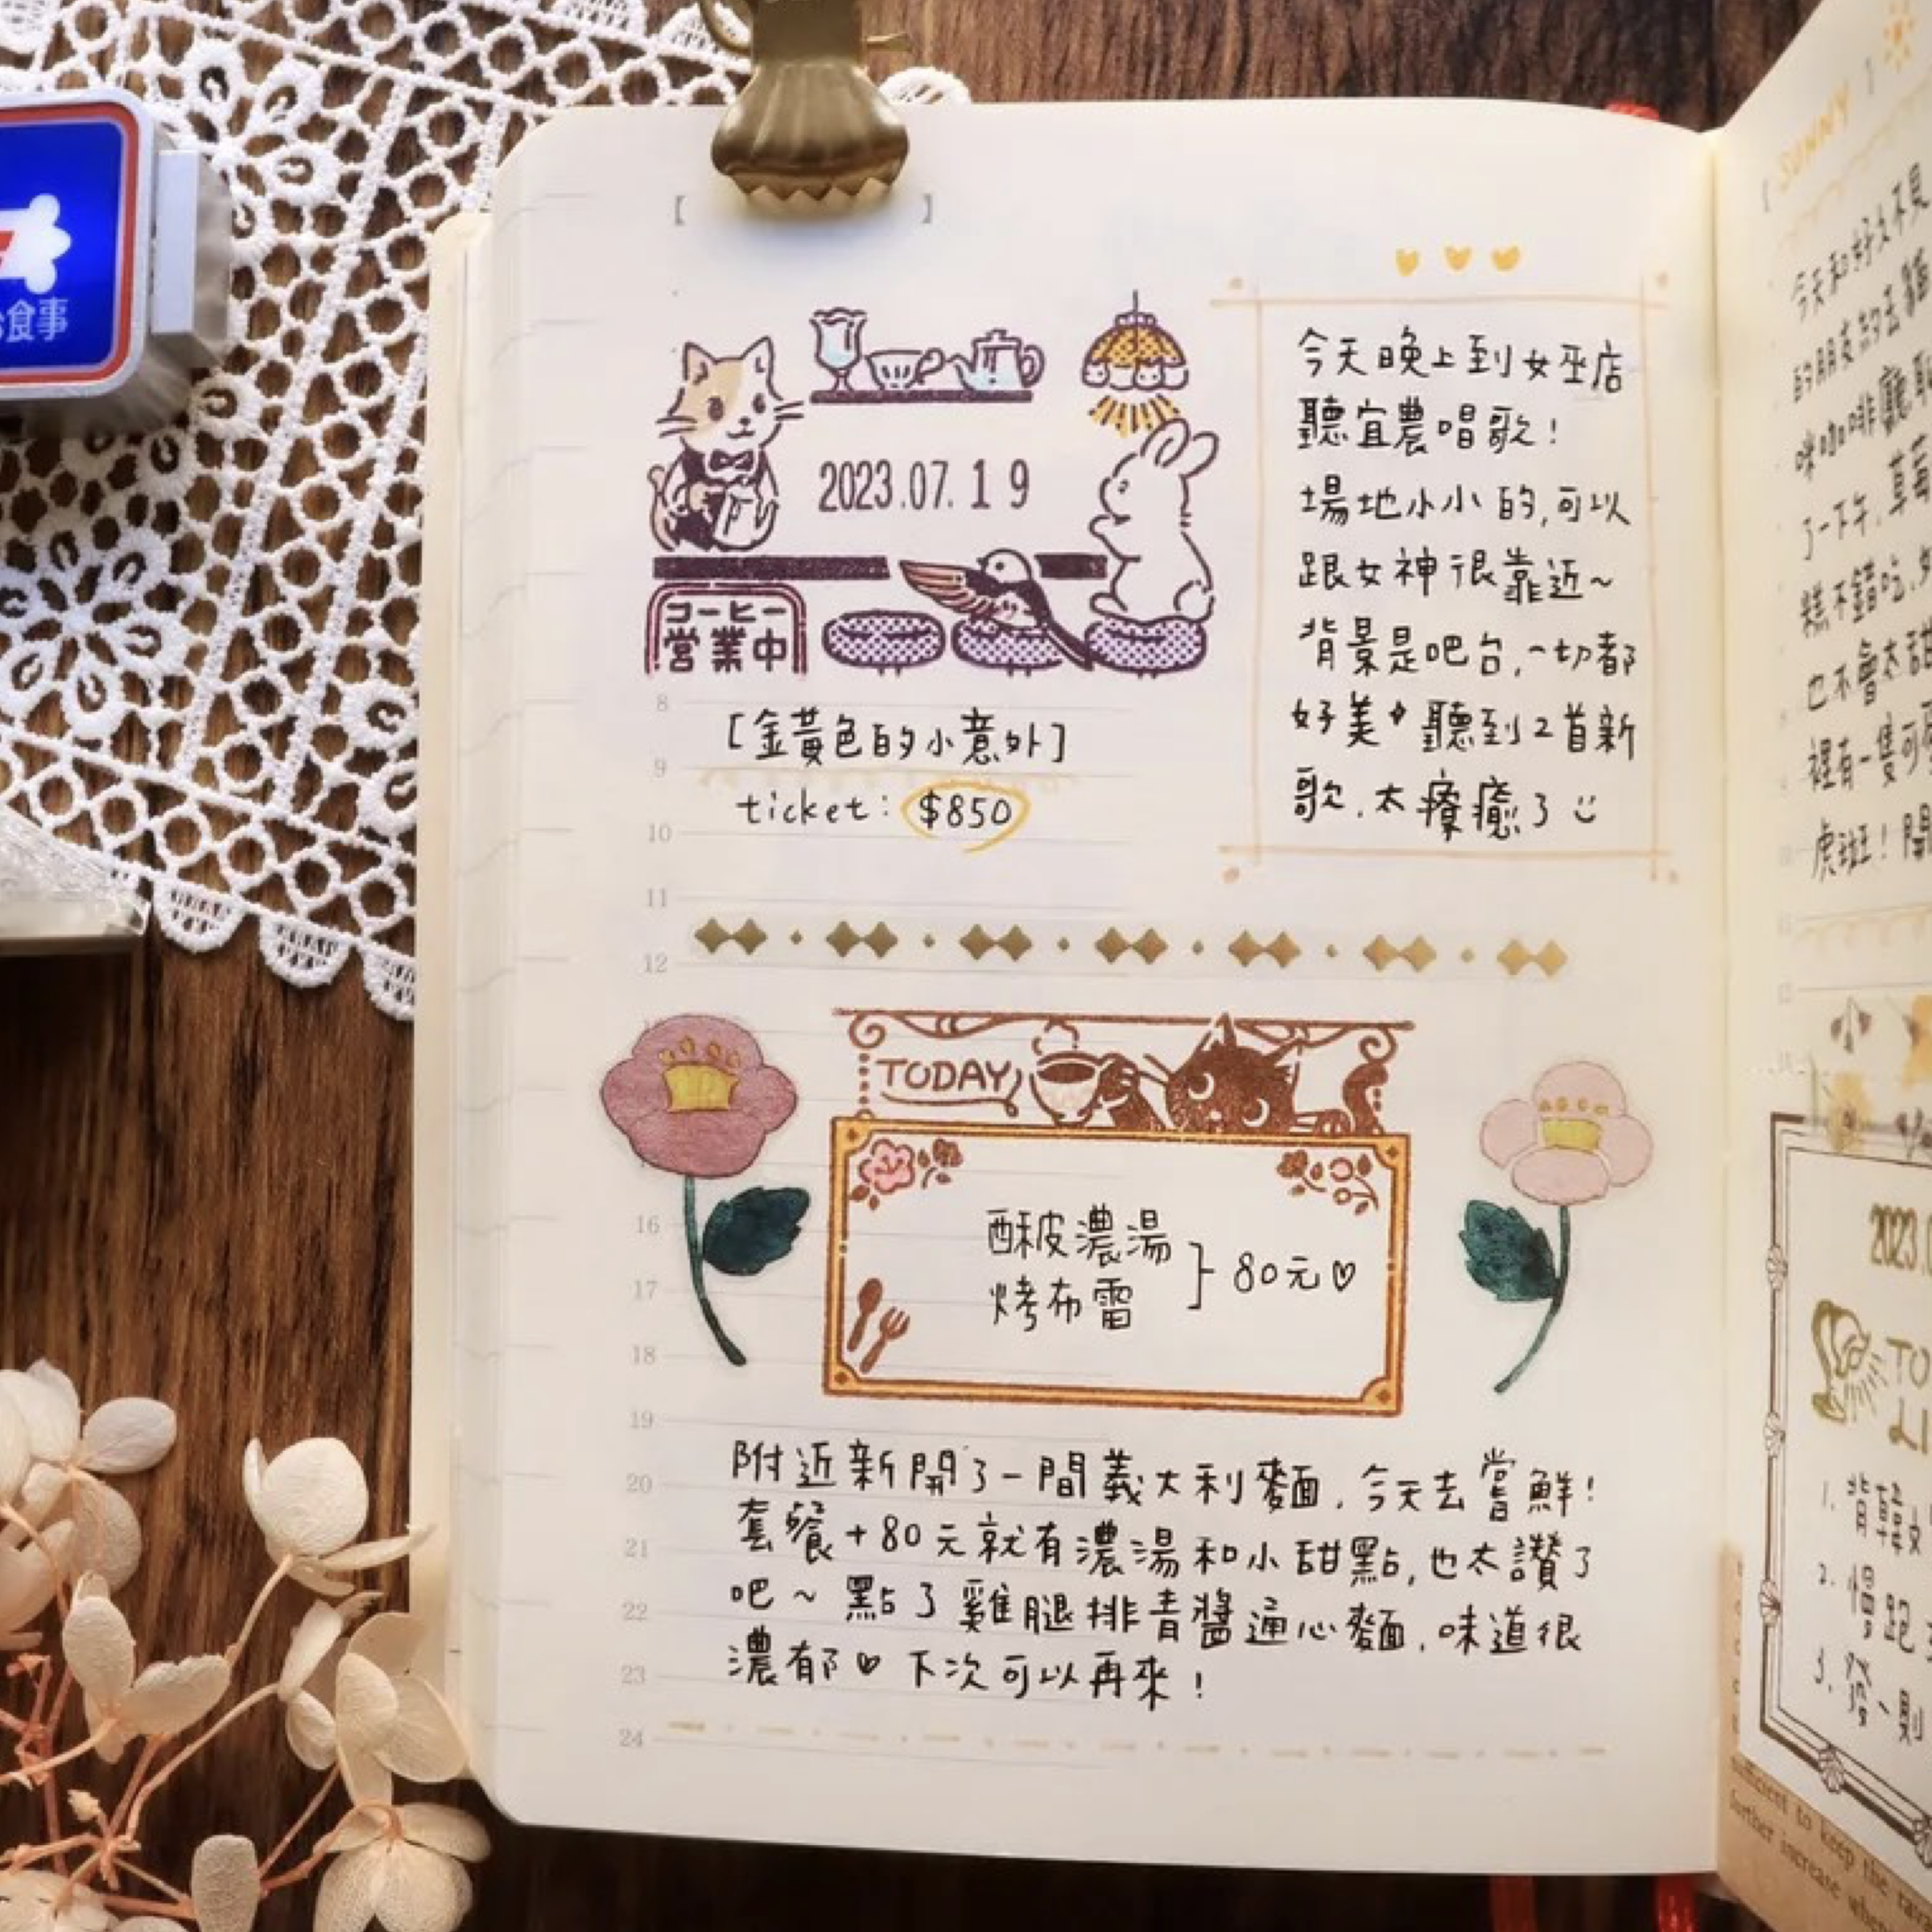 食事
【 】
2023.07.19
コーヒー
営業中
今天晚上到女巫店
聽宜農唱歌!
場地小小的,可以
跟女神很靠近~
背景是吧台,一切都
好美 聽到2首新
歌,太療癒了
8
[金黃色的小意外]
9
ticket: $850
10
11
12
TODAY
16
酥皮濃湯
烤布雷
80元♡
17
18
19
附近新開了一間義大利麵,今天去嘗鮮!
20
套餐+80元就有濃湯和小甜點,也太讚了
21
吧~點了雞腿排青醬通心麵,味道很
22
濃郁♡下次可以再來!
23
24
SUNNY
今天和好久不見
的朋友約去貓
咪咖啡廳
了一下午,草莓
糕不錯吃,
也不會太甜
裡有一隻可
虎斑!
2023.0
TO
LI
1. 背韓
2. 慢跑
3.
sufficient to keep the
further increase